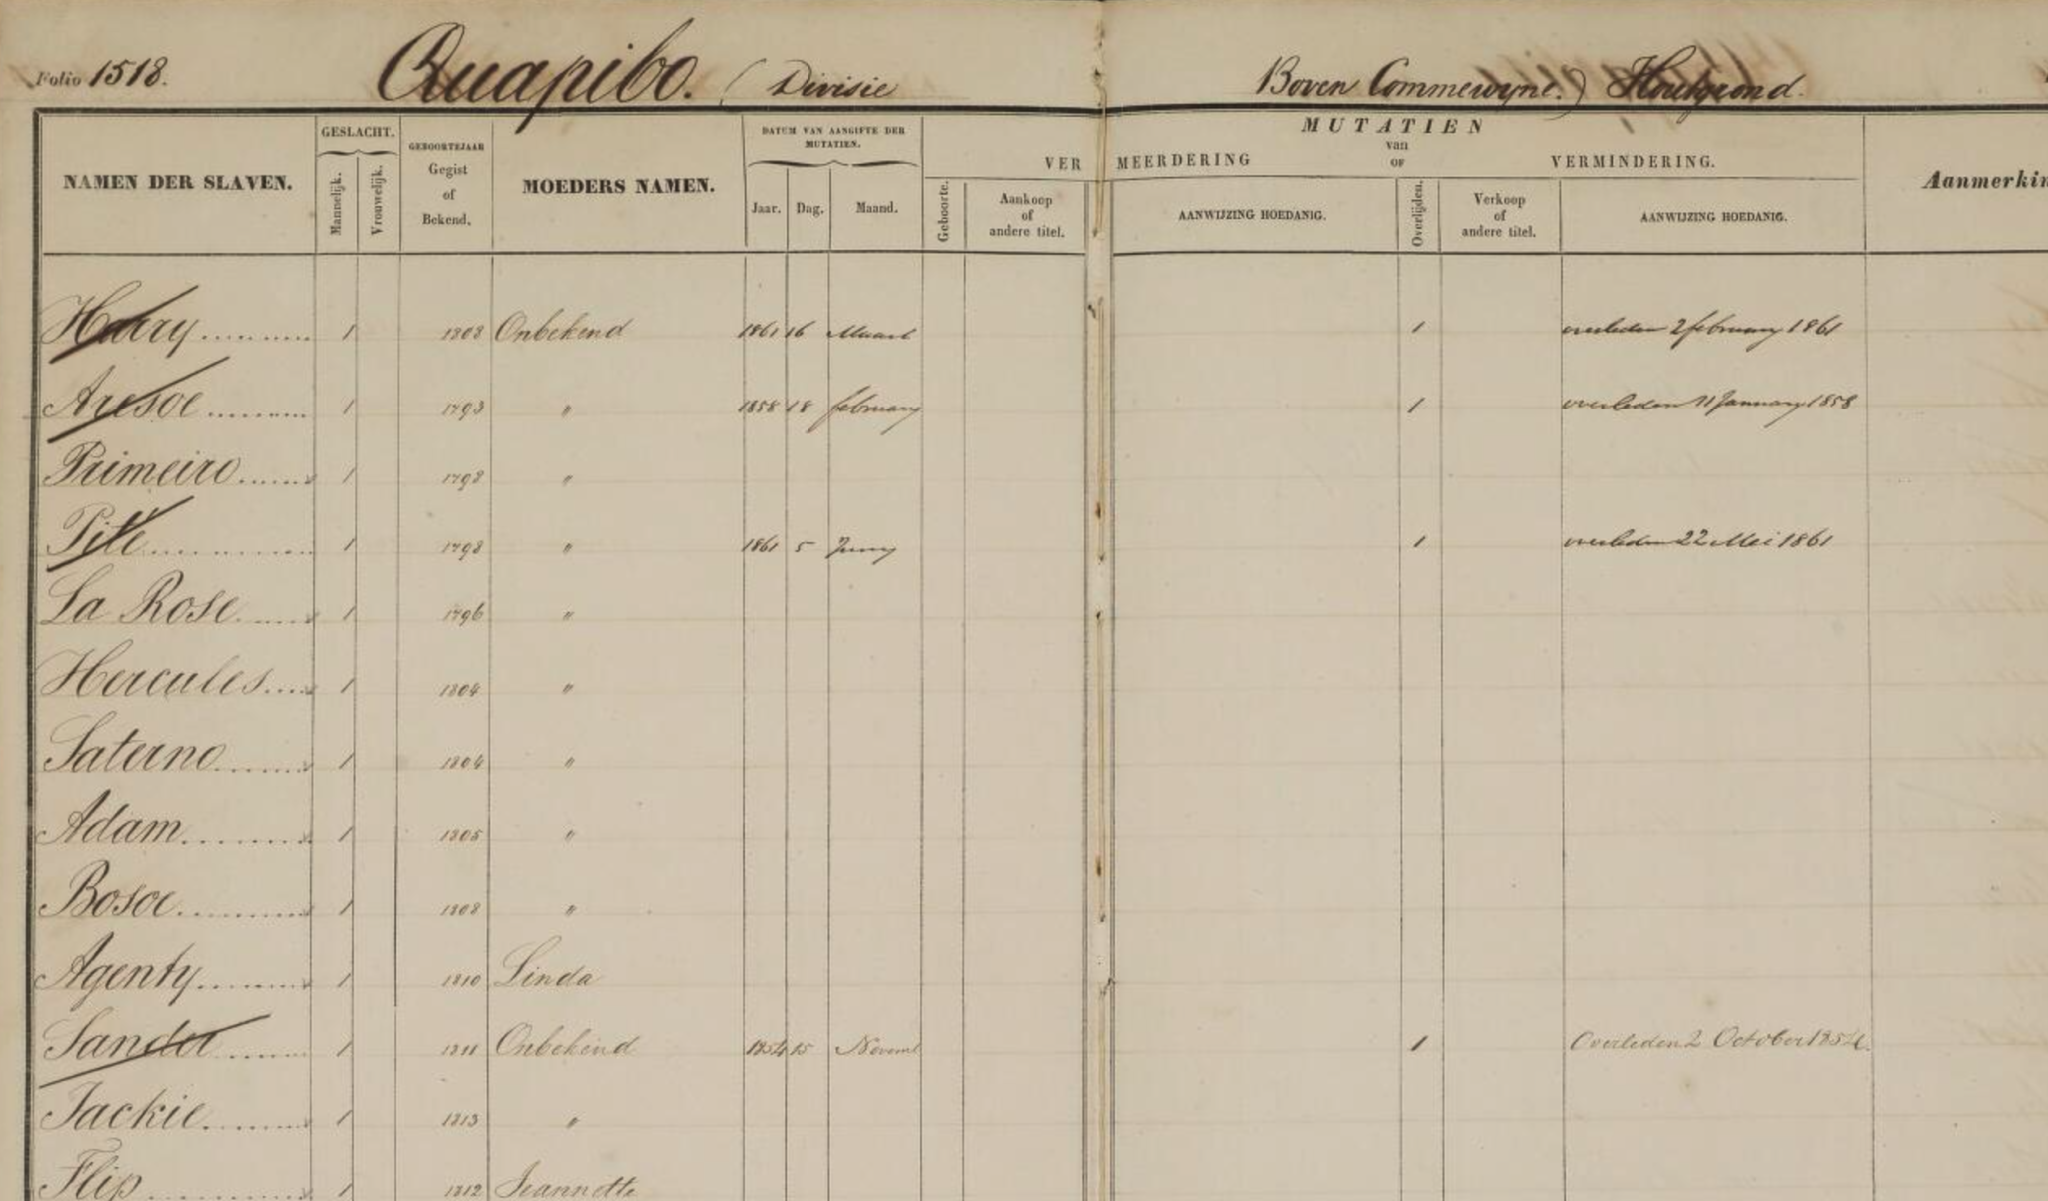 Folio 1518. Quapibo. (Divisie Boven Commewyne.) Houtgrond.
NAMEN DER SLAVEN.
GESLACHT.
Mannelijk.
Vrouwelijk.
GEBOORTEJAAR
Gegist
of
Bekend.
MOEDERS NAMEN.
DATUM VAN AANGIFTE DER
MUTATIEN.
Jaar. Dag. Maand.
MUTATIEN
van
VERMEERDERING OF VERMINDERING.
Geboorte.
Aankoop
of
andere titel.
AANWIJZING HOEDANIG.
Overlijden.
Verkoop
of
andere titel.
AANWIJZING HOEDANIG.
Aanmerkin
Harry 1 1808 Onbekend 1861 16 Maart 1 overleden 2 february 1861
Aresoe 1 1793 " 1858 18 february 1 overleden 11 January 1858
Primeiro 1 1798 "
Pité 1 1798 " 1861 5 Juny 1 overleden 22 Mei 1861
La Rose 1 1796 "
Hercules 1 1804 "
Saterno 1 1804 "
Adam 1 1805 "
Bosoe 1 1808 "
Agenty 1 1810 Linda
Sander 1 1811 Onbekend 1854 15 Novemb 1 Overleden 2 October 1854.
Jackie 1 1813 "
Flip 1 1812 Jeannette